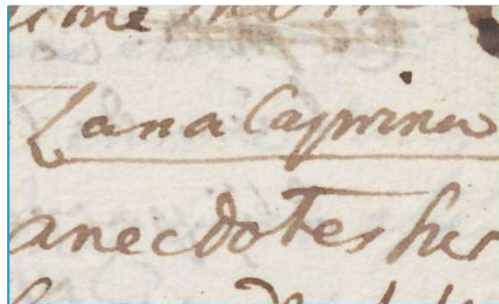 Lana Caprina
anecdotes sur